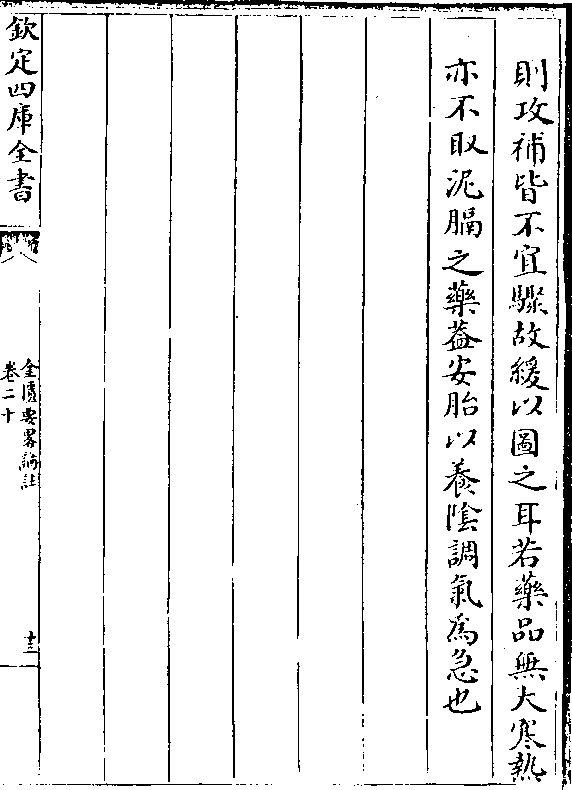 則攻補皆不宜驟故緩以圖之耳若藥品無大寒熱
亦不取泥膈之藥葢安胎以養陰調氣為急也
欽定四庫全書
金匱要略論註
卷二十
十三